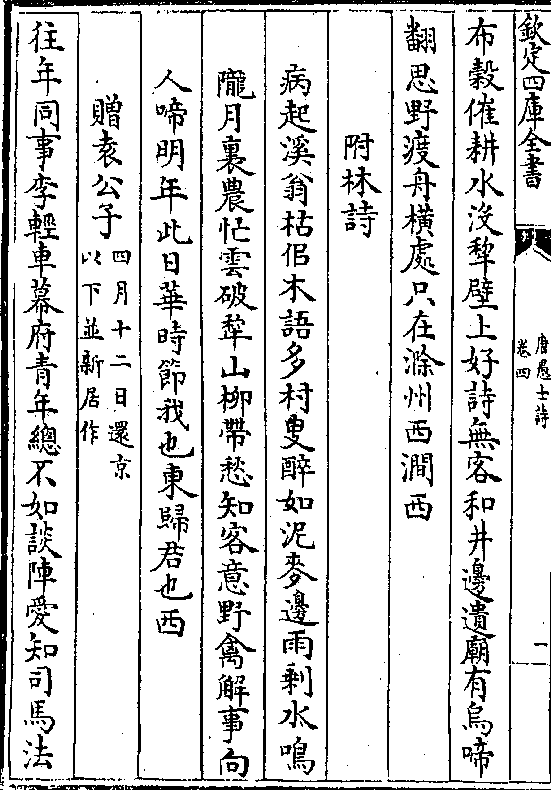 欽定四庫全書
唐愚士詩
卷四
一
布穀催耕水沒犂壁上好詩無客和井邊遺廟有烏啼
翻思野渡舟橫處只在滁州西澗西
附林詩
病起溪翁枯侶木語多村叟醉如泥麥邊雨剩水鳴
隴月裏農忙雲破犂山柳帶愁知客意野禽解事向
人啼明年此日華時節我也東歸君也西
贈袁公子
四月十二日還京
以下並新居作
往年同事李輕車幕府青年總不如談陣愛知司馬法